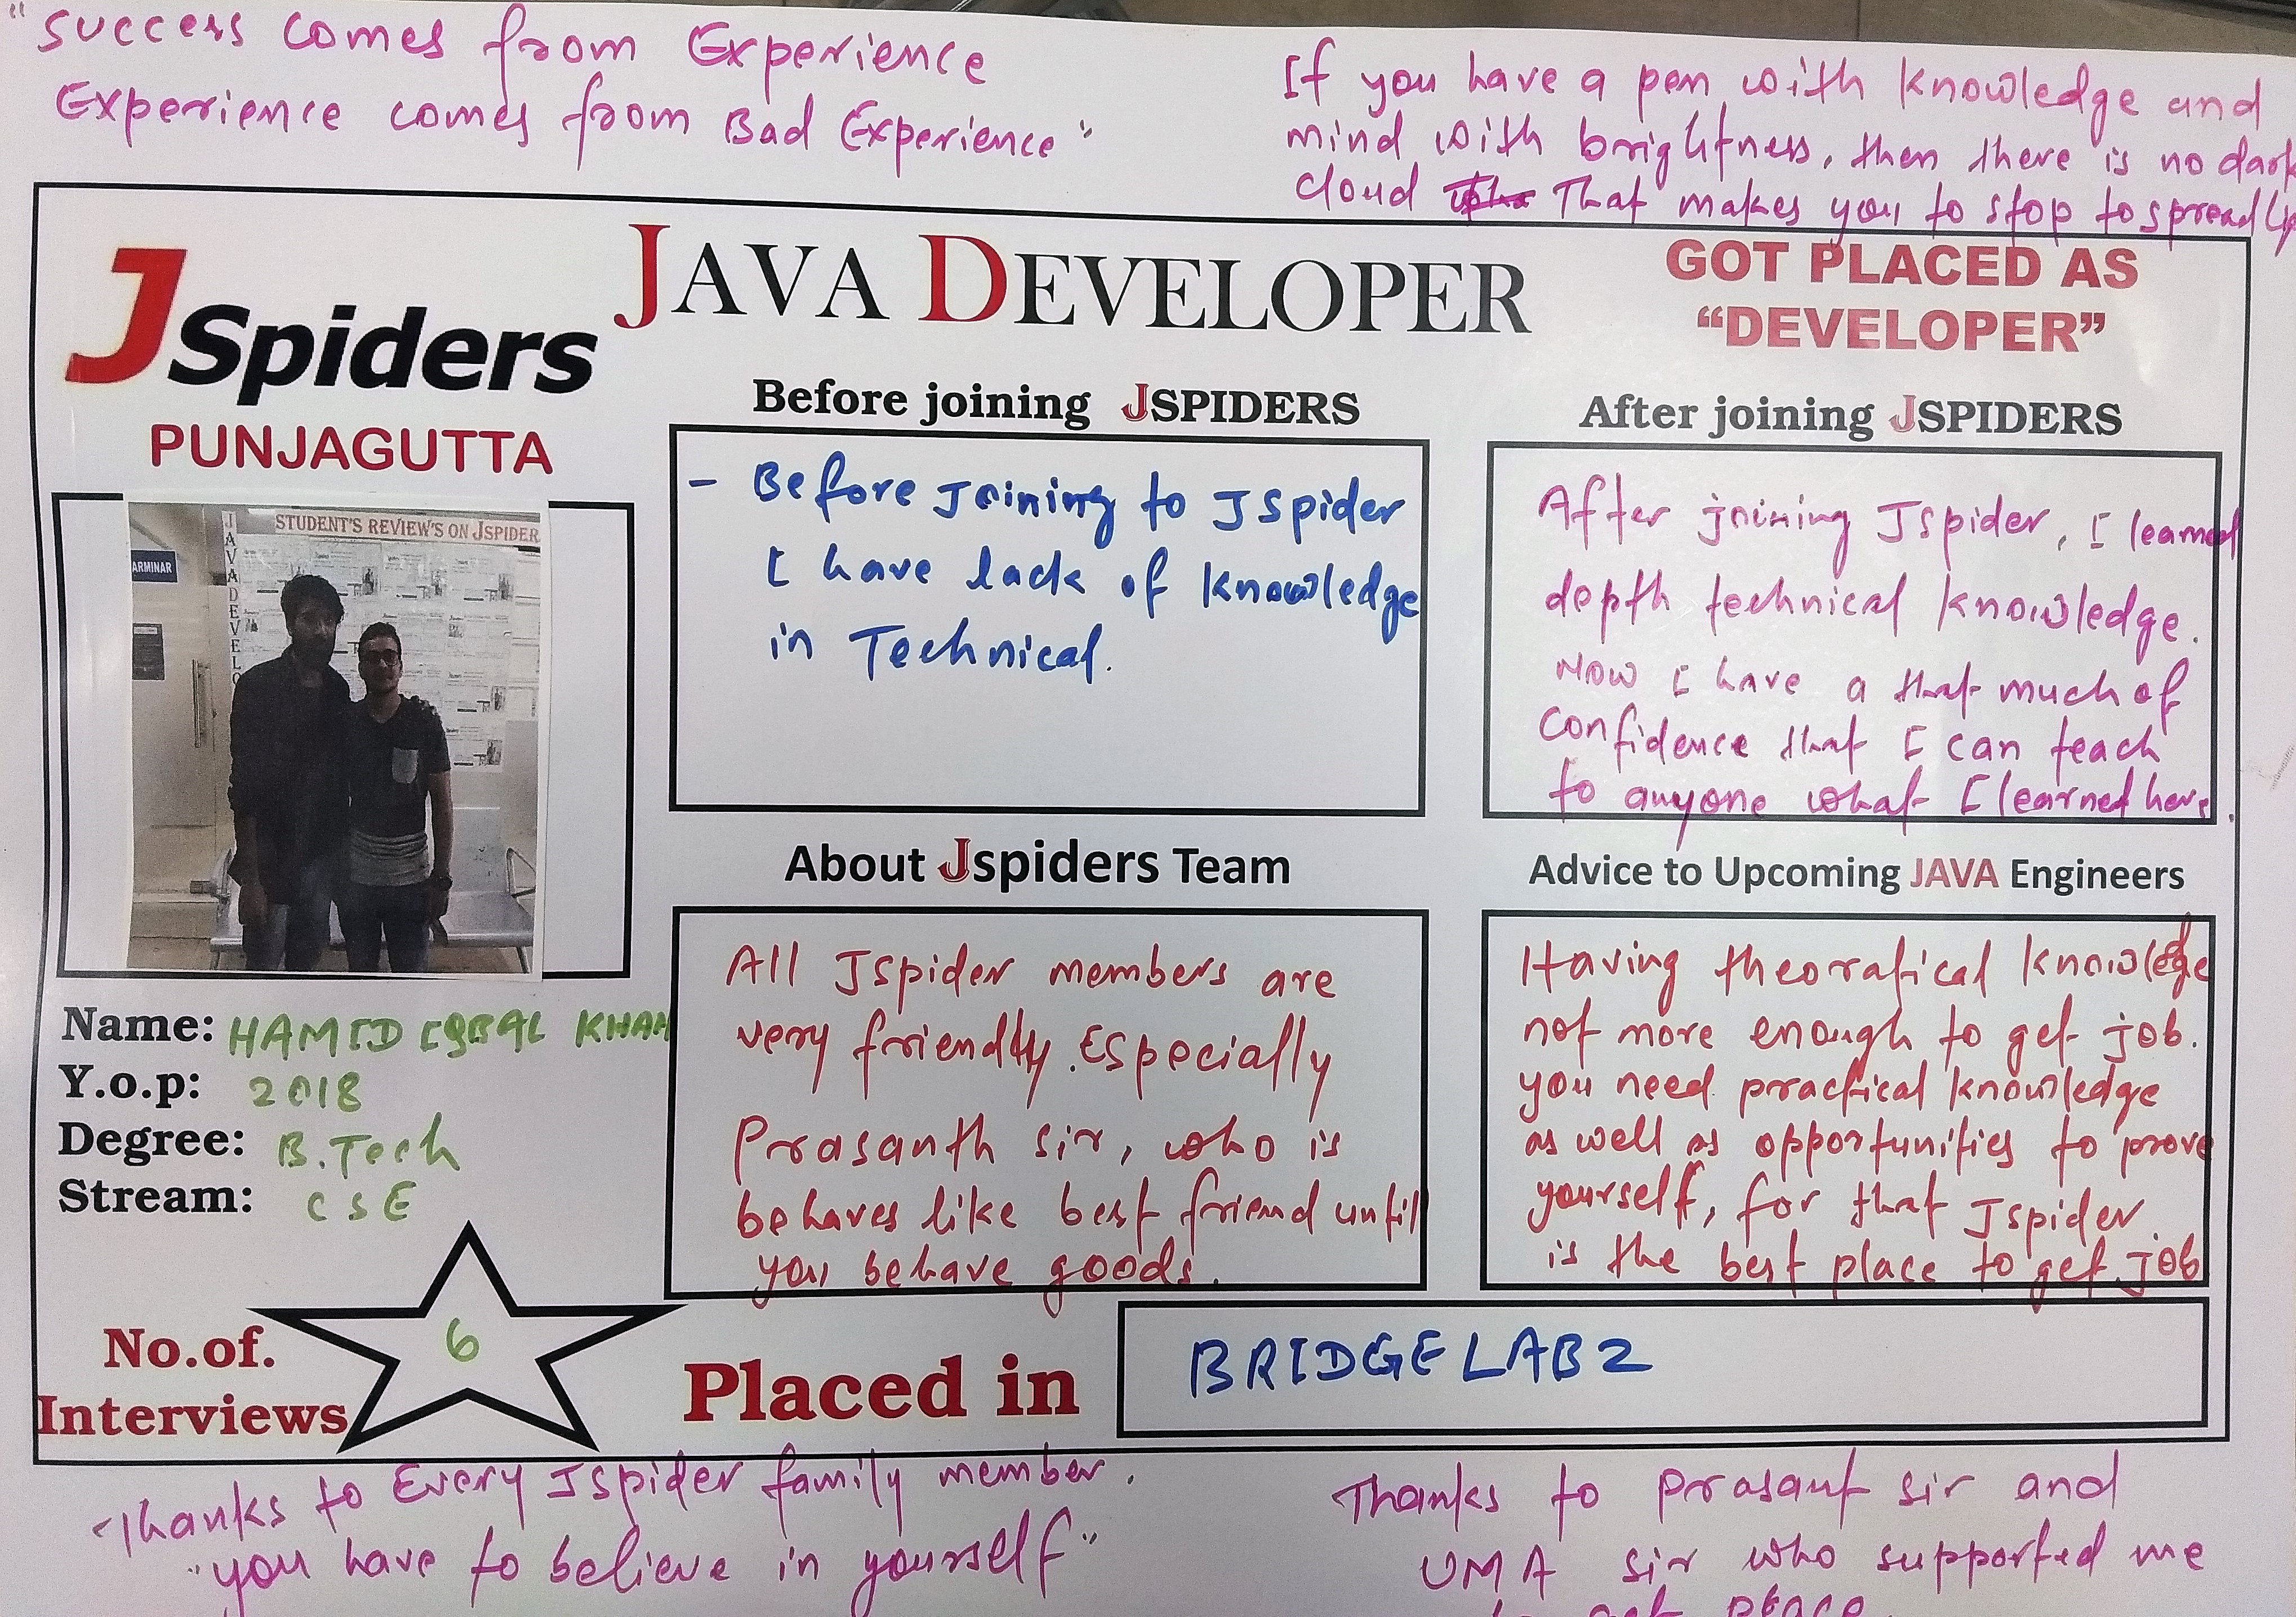 "Success comes from Experience
Experience comes from Bad Experience"
If you have a pen with knowledge and
mind with brightness, then there is no dark
cloud That makes you to stop to spread
JAVA DEVELOPER
GOT PLACED AS
"DEVELOPER"
JSpiders
PUNJAGUTTA
STUDENT'S REVIEW'S ON JSPIDER
JAVA DEVELO
ARMINAR
Name: HAMID IQBAL KHAN
Y.o.p: 2018
Degree: B.Tech
Stream: CSE
No.of.
Interviews
6
Before joining JSPIDERS
- Before Joining to JSpider
I have lack of knowledge
in Technical.
After joining JSPIDERS
After joining JSpider, I learned
depth technical knowledge.
Now I have a that much of
confidence that I can teach
to anyone what I learned here.
About Jspiders Team
All JSpider members are
very friendly. Especially
Prasanth sir, who is
behaves like best friend until
you behave goods.
Advice to Upcoming JAVA Engineers
Having theoratical knowledge
not more enough to get job.
you need practical knowledge
as well as opportunities to prove
yourself, for that JSpider
is the best place to get job
Placed in
BRIDGELABZ
Thanks to Every JSpider family member.
"you have to believe in yourself"
Thanks to Prasant sir and
UMA sir who supported me
to get place